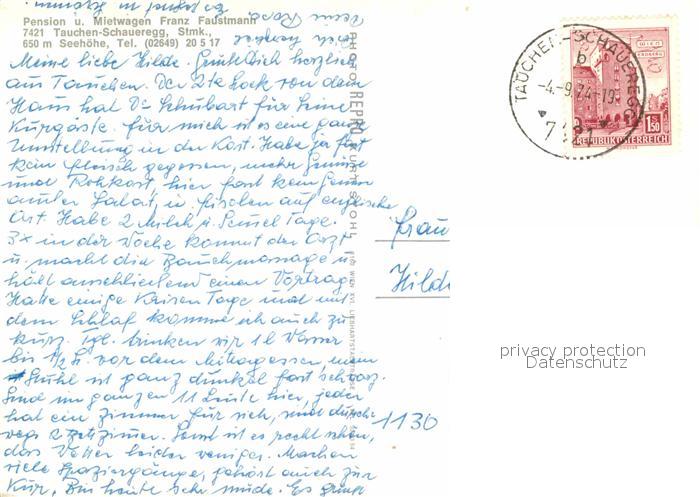 Pension u. Mietwagen Franz Faustmann
7421 Tauchen-Schaueregg, Stmk.,
650 m Seehöhe, Tel. (02649) 20 5 17
Meine liebe Hilde. Grüße Dich herzlich
aus Tauchen. Der 2te Stock von dem
Haus hat Dr. Schubart für seine
Kurgäste. Für mich ist es eine ganze
Umstellung in der Kost. Habe ja fast
kein Fleisch gegessen, mehr Gemüse
und Rohkost, hier fast kein Gemüse
außer Salat, u. Fisolen auf englische
Art. Habe 2 Milch u. Semmel Tage.
3x in der Woche kommt der Arzt
u. macht die Bauchmassage u.
hält anschließend einen Vortrag
Hatte einige Krisen Tage und mit
dem Schlaf komme ich auch zu
kurz. Tgl. trinken wir 1 l Wasser
bis 1/2 St. vor dem Mittagessen mein
Stuhl ist ganz dunkel fast schwarz.
Sind im ganzen 11 Leute hier, jeder
hat ein Zimmer für sich, sind durch-
wegs 2 Bettzimmer. Sonst ist es recht schön,
das Wetter leider weniger. Machen
viele Spaziergänge, gehört auch zur
Kur, Bin heute sehr müde. Es grüßt
Dich herzlich
Deine Rosa
PHOTO REPRO KURT STOHL
1160 WIEN XVI. LIEBHARTSTALSTRASSE
Frau
Hilde
1130
TAUCHEN-SCHAUEREGG
b
-4.-9.74-19
7421
WIEN
ERDBERG
1.50
REPUBLIK ÖSTERREICH
privacy protection
Datenschutz